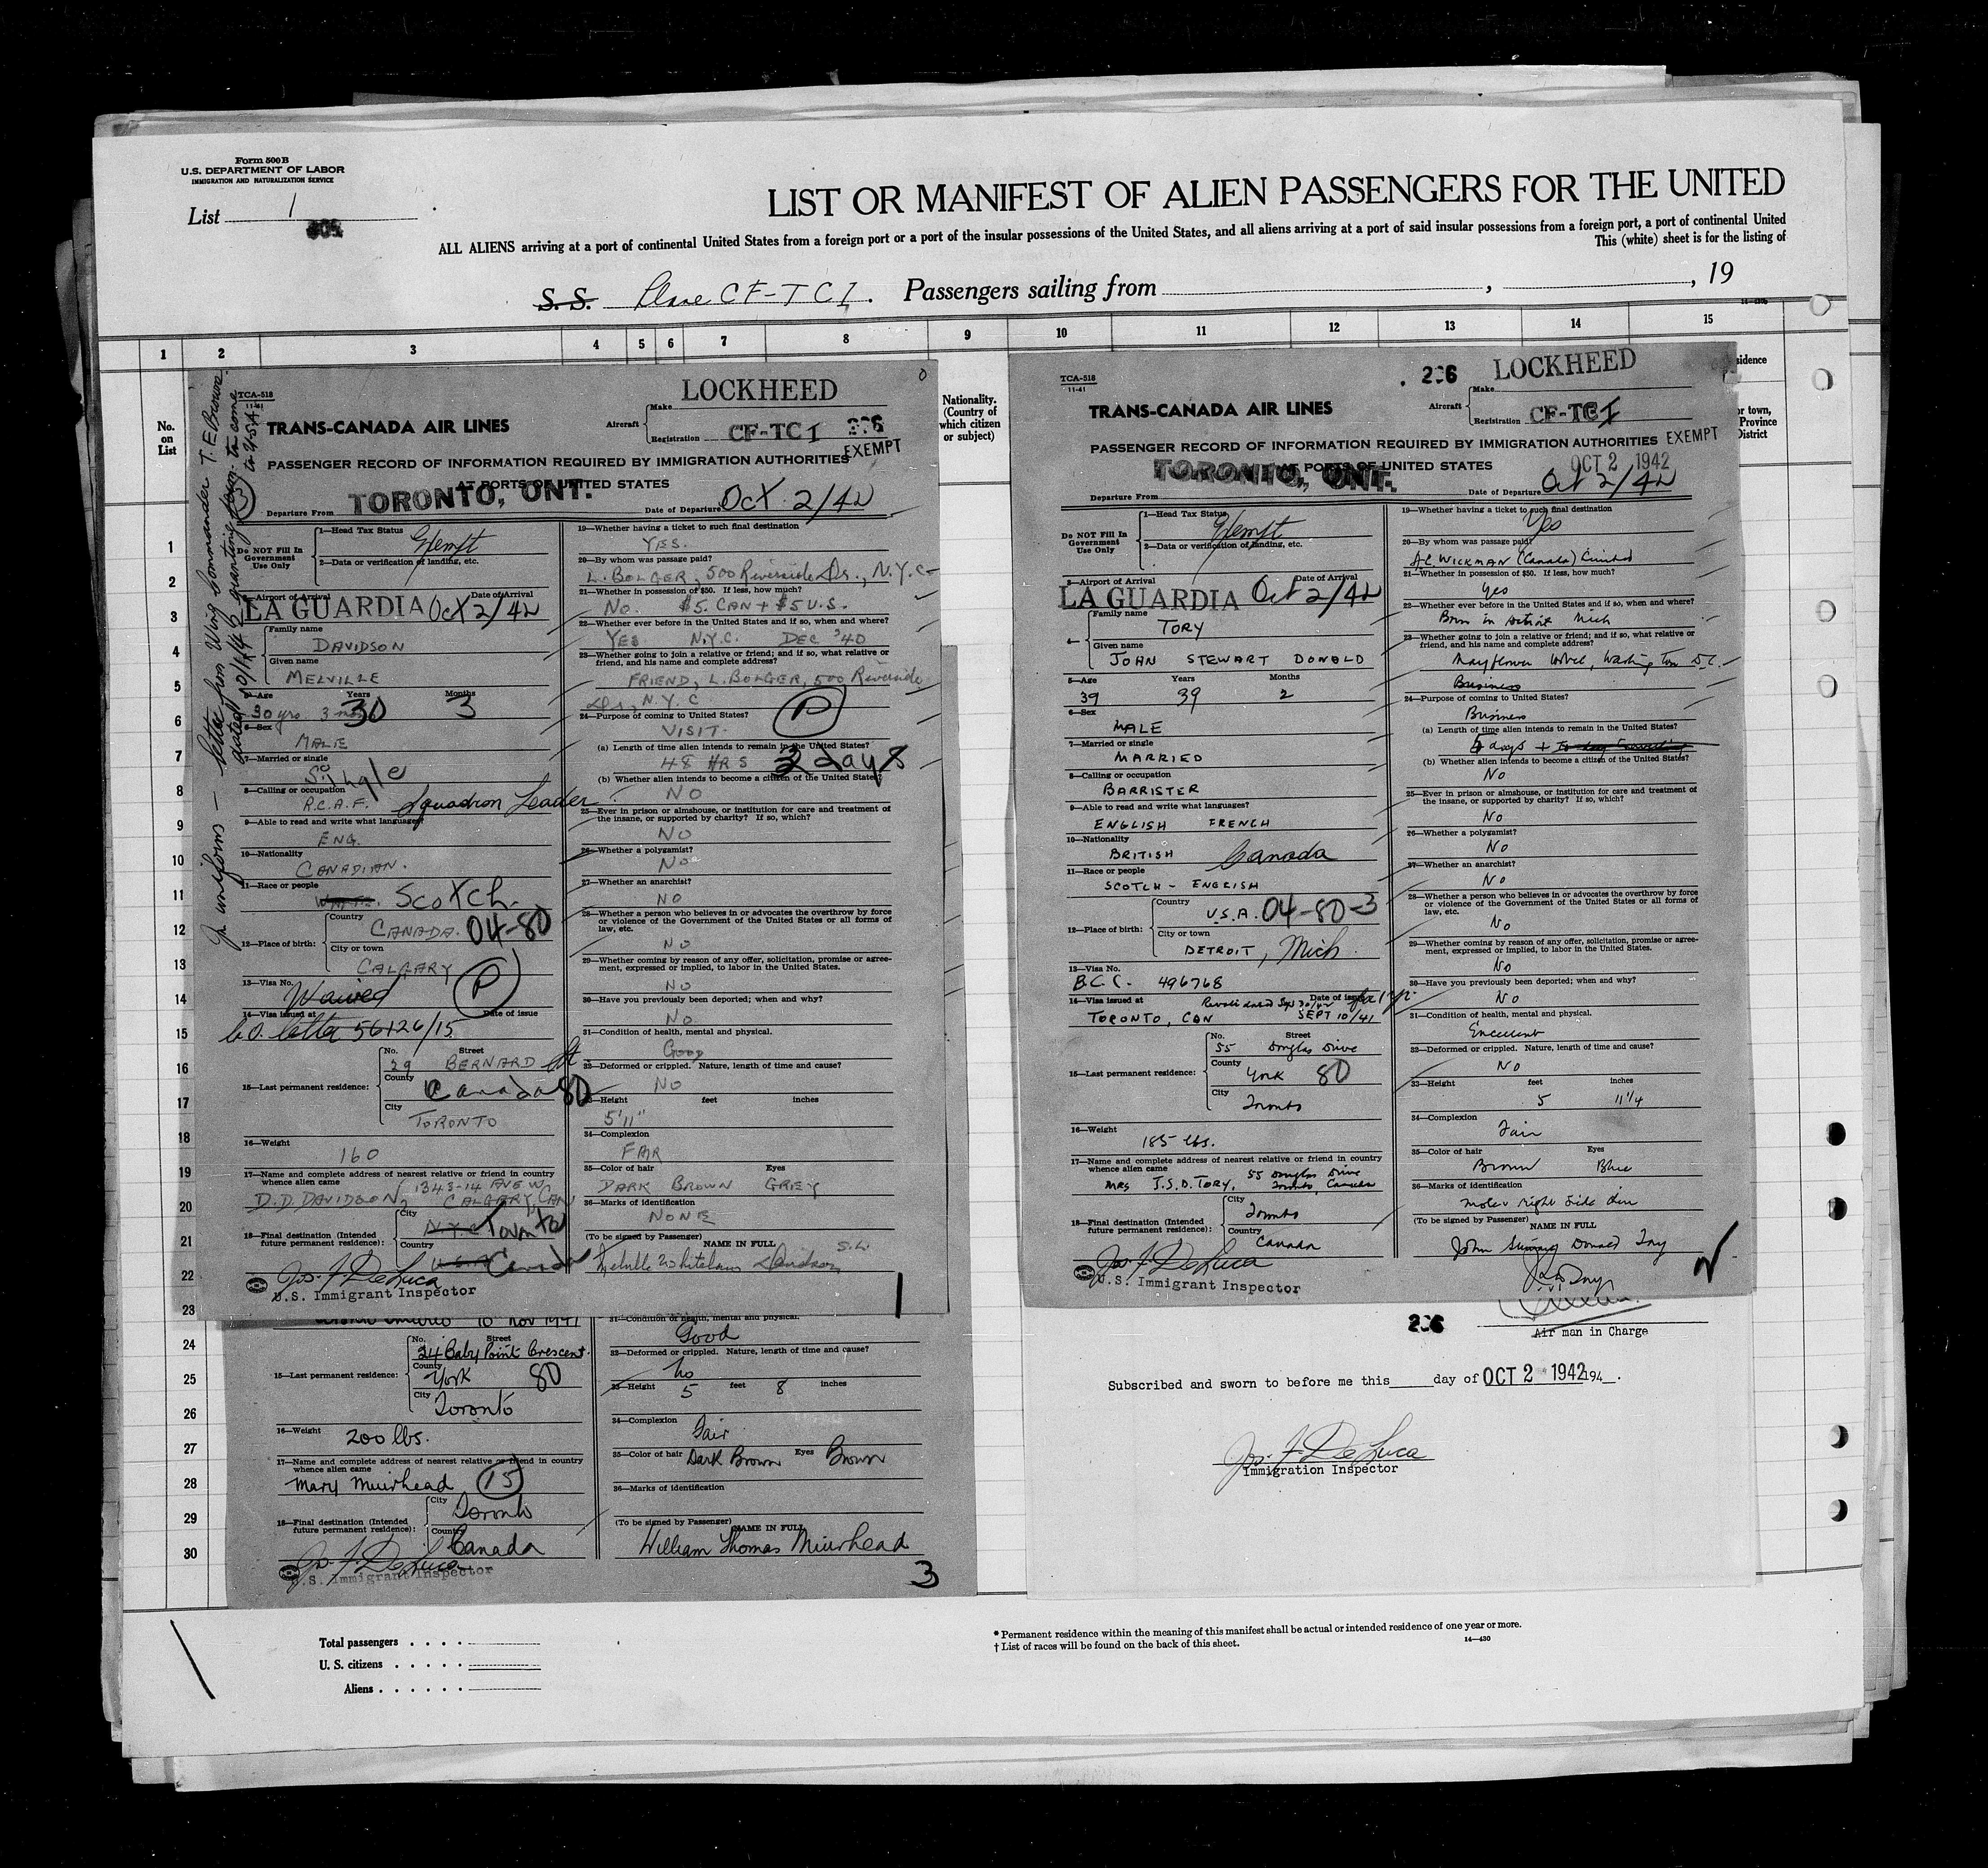 Form 500 B
U.S. DEPARTMENT OF LABOR
IMMIGRATION AND NATURALIZATION SERVICE
List 1
LIST OR MANIFEST OF ALIEN PASSENGERS FOR THE UNITED
ALL ALIENS arriving at a port of continental United States from a foreign port or a port of the insular possessions of the United States, and all aliens arriving at a port of said insular possessions from a foreign port, a port of continental United
This (white) sheet is for the listing of
S. S. Plane CF-TCI. Passengers sailing from , , 19
1 2 3 4 5 6 7 8 9 10 11 12 13 14 15
No. on List
Nationality. (Country of which citizen or subject)
sidence
or town,
Province
District
1
2
3
4
5
6
7
8
9
10
11
12
13
14
15
16
17
18
19
20
21
22
23
24
25
26
27
28
29
30
In uniform — letter from Wing Commander T. E. Brown
dated granting perm. to come
to U.S.A.
3
TCA-518
11-41
LOCKHEED
TRANS-CANADA AIR LINES
Aircraft Make
Registration CF-TCI 206
PASSENGER RECORD OF INFORMATION REQUIRED BY IMMIGRATION AUTHORITIES EXEMPT
AT PORTS OF UNITED STATES
Departure From TORONTO, ONT. Date of Departure Oct 2/42
Do NOT Fill In Government Use Only
1—Head Tax Status Exempt
2—Data or verification of landing, etc.
3—Airport of Arrival Date of Arrival
LA GUARDIA Oct 2/42
Family name
DAVIDSON
Given name
MELVILLE
5—Age Years Months
30 yrs 3 mos 30 3
6—Sex
MALE
7—Married or single
Single
8—Calling or occupation
R.C.A.F. Squadron Leader
9—Able to read and write what languages?
ENG.
10—Nationality
CANADIAN.
11—Race or people
Scotch.
12—Place of birth:
Country
CANADA. 04-80
City or town
CALGARY
13—Visa No.
Waived P
14—Visa issued at Date of issue
C.O. letter 56126/15
15—Last permanent residence:
No. Street
29 BERNARD
County
Canada 80
City
TORONTO
16—Weight
160
17—Name and complete address of nearest relative or friend in country
whence alien came
D. D. DAVIDSON, 1343-14 AVE W.
CALGARY, CAN
18—Final destination (Intended future permanent residence):
City
N.Y.C. Toronto
Country
U.S.A. Canada
Jos. F. DeLuca
U.S. Immigrant Inspector
19—Whether having a ticket to such final destination
YES.
20—By whom was passage paid?
L. BOLGER, 500 Riverside Dr., N.Y.C.
21—Whether in possession of $50. If less, how much?
NO. $5. CAN + $5 U.S.
22—Whether ever before in the United States and if so, when and where?
YES N.Y.C. DEC '40
23—Whether going to join a relative or friend; and if so, what relative or
friend, and his name and complete address?
FRIEND, L. BOLGER, 500 Riverside
Dr., N.Y.C
24—Purpose of coming to United States?
VISIT. P
(a) Length of time alien intends to remain in the United States?
48 HRS 2 days
(b) Whether alien intends to become a citizen of the United States?
NO
25—Ever in prison or almshouse, or institution for care and treatment of
the insane, or supported by charity? If so, which?
NO
26—Whether a polygamist?
NO
27—Whether an anarchist?
NO
28—Whether a person who believes in or advocates the overthrow by force
or violence of the Government of the United States or all forms of
law, etc.
NO
29—Whether coming by reason of any offer, solicitation, promise or agree-
ment, expressed or implied, to labor in the United States.
NO
30—Have you previously been deported; when and why?
NO
31—Condition of health, mental and physical.
GOOD
32—Deformed or crippled. Nature, length of time and cause?
NO
33—Height feet inches
5'11"
34—Complexion
FAIR
35—Color of hair Eyes
DARK BROWN GREY
36—Marks of identification
NONE
(To be signed by Passenger) NAME IN FULL
Davidson S.L.
1
Toronto Ontario 10 Nov 1941
No. Street
24 Baby Point Crescent.
15—Last permanent residence:
County
York 80
City
Toronto
16—Weight
200 lbs.
17—Name and complete address of nearest relative or friend in country
whence alien came
Mary Muirhead 15
18—Final destination (Intended future permanent residence):
City
Toronto
Country
Canada
Jos. F. DeLuca
U.S. Immigrant Inspector
31—Condition of health, mental and physical.
Good
32—Deformed or crippled. Nature, length of time and cause?
No
33—Height 5 feet 8 inches
34—Complexion
Fair
35—Color of hair Dark Brown Eyes Brown
36—Marks of identification
(To be signed by Passenger)
NAME IN FULL
William Thomas Muirhead
3
TCA-518
11-41
206 LOCKHEED
TRANS-CANADA AIR LINES
Aircraft Make
Registration CF-TCI
PASSENGER RECORD OF INFORMATION REQUIRED BY IMMIGRATION AUTHORITIES EXEMPT
AT PORTS OF UNITED STATES OCT 2 1942
Departure From TORONTO, ONT. Date of Departure Oct 2/42
Do NOT Fill In Government Use Only
1—Head Tax Status Exempt
2—Data or verification of landing, etc.
3—Airport of Arrival Date of Arrival
LA GUARDIA Oct 2/42
4—
Family name
TORY
Given name
JOHN STEWART DONALD
5—Age Years Months
39 39 2
6—Sex
MALE
7—Married or single
MARRIED
8—Calling or occupation
BARRISTER
9—Able to read and write what languages?
ENGLISH FRENCH
10—Nationality
BRITISH Canada
11—Race or people
SCOTCH - ENGLISH
12—Place of birth:
Country
U.S.A. 04-80-3
City or town
DETROIT, Mich.
13—Visa No.
B.C.C. 496768
14—Visa issued at Date of issue
Revalidated Sep 30/42
TORONTO, CAN SEPT 10/41
15—Last permanent residence:
No. Street
55 Douglas Drive
County
York 80
City
Toronto
16—Weight
185 lbs.
17—Name and complete address of nearest relative or friend in country
whence alien came 55 Douglas Drive
MRS J.S.D. TORY, Toronto, Canada
18—Final destination (Intended future permanent residence):
City
Toronto
Country
Canada
Jos. F. DeLuca
U.S. Immigrant Inspector
19—Whether having a ticket to such final destination
Yes
20—By whom was passage paid?
A.C. WICKMAN (Canada) Limited
21—Whether in possession of $50. If less, how much?
Yes
22—Whether ever before in the United States and if so, when and where?
Born in Detroit Mich
23—Whether going to join a relative or friend; and if so, what relative or
friend, and his name and complete address?
Mayflower Hotel, Washington D.C.
Business
24—Purpose of coming to United States?
Business
(a) Length of time alien intends to remain in the United States?
5 days +
(b) Whether alien intends to become a citizen of the United States?
No
25—Ever in prison or almshouse, or institution for care and treatment of
the insane, or supported by charity? If so, which?
No
26—Whether a polygamist?
No
27—Whether an anarchist?
No
28—Whether a person who believes in or advocates the overthrow by force
or violence of the Government of the United States or all forms of
law, etc.
No
29—Whether coming by reason of any offer, solicitation, promise or agree-
ment, expressed or implied, to labor in the United States.
No
30—Have you previously been deported; when and why?
No
31—Condition of health, mental and physical.
Excellent
32—Deformed or crippled. Nature, length of time and cause?
No
33—Height feet inches
5 11 1/4
34—Complexion
Fair
35—Color of hair Eyes
Brown Blue
36—Marks of identification
Mole right side
(To be signed by Passenger)
NAME IN FULL
John Stewart Donald Tory
206
Air man in Charge
Subscribed and sworn to before me this day of OCT 2 1942 194 .
Jos. F. DeLuca
Immigration Inspector
Total passengers
U. S. citizens
Aliens
* Permanent residence within the meaning of this manifest shall be actual or intended residence of one year or more.
† List of races will be found on the back of this sheet.
14—430